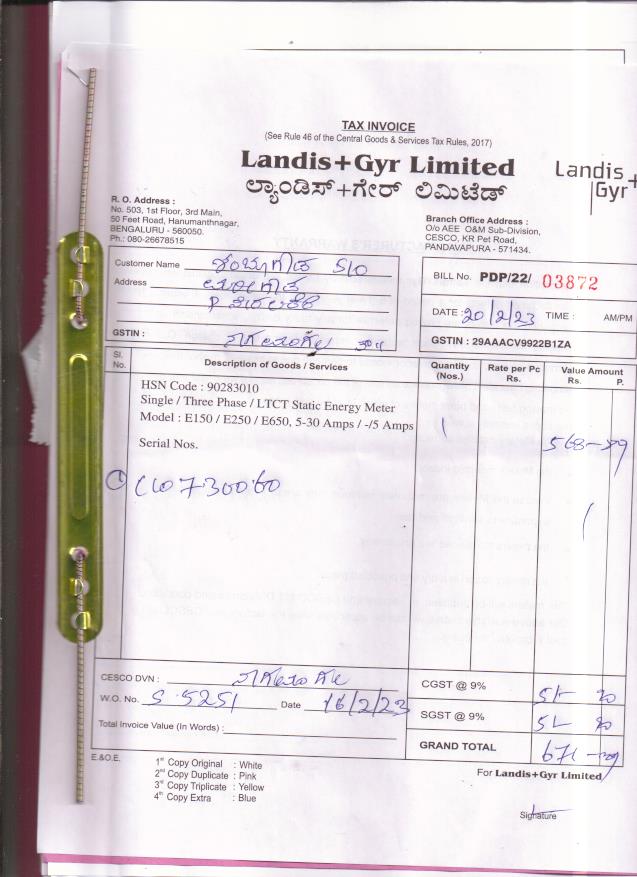 TAX INVOICE
(See Rule 46 of the Central Goods & Services Tax Rules, 2017)
Landis+Gyr Limited
ಲ್ಯಾಂಡಿಸ್+ಗೇರ್ ಲಿಮಿಟೆಡ್
Landis+
Gyr
R. O. Address :
No. 503, 1st Floor, 3rd Main,
50 Feet Road, Hanumanthnagar,
BENGALURU - 560050.
Ph.: 080-26678515
Branch Office Address :
O/o AEE O&M Sub-Division,
CESCO, KR Pet Road,
PANDAVAPURA - 571434.
Customer Name S/O
Address
GSTIN :
BILL No. PDP/22/ 03872
DATE : 20/2/23 TIME : AM/PM
GSTIN : 29AAACV9922B1ZA
Sl. No. Description of Goods / Services Quantity (Nos.) Rate per Pc Rs. Value Amount Rs. P.
HSN Code : 90283010
Single / Three Phase / LTCT Static Energy Meter
Model : E150 / E250 / E650, 5-30 Amps / -/5 Amps 1
Serial Nos. 568-
1
CESCO DVN :
W.O. No. S-5251 Date 16/2/23
Total Invoice Value (In Words) :
CGST @ 9% 51-
SGST @ 9% 51-
GRAND TOTAL 671-
E.&O.E.
1st Copy Original : White
2nd Copy Duplicate : Pink
3rd Copy Triplicate : Yellow
4th Copy Extra : Blue
For Landis+Gyr Limited
Signature